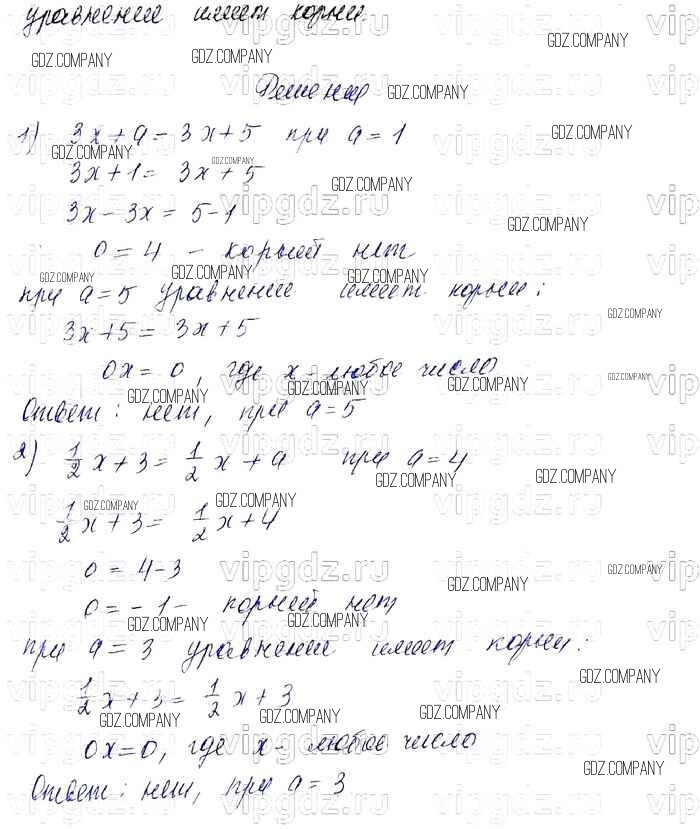 уравнение имеет корни.
Решение
1) 3x + a = 3x + 5 при a = 1
3x + 1 = 3x + 5
3x - 3x = 5 - 1
0 = 4 - корней нет
при a = 5 уравнение имеет корни:
3x + 5 = 3x + 5
0x = 0, где x - любое число
Ответ: нет, при a = 5
2) 1/2 x + 3 = 1/2 x + a при a = 4
1/2 x + 3 = 1/2 x + 4
0 = 4 - 3
0 = -1 - корней нет
при a = 3 уравнение имеет корни:
1/2 x + 3 = 1/2 x + 3
0x = 0, где x - любое число
Ответ: нет, при a = 3
GDZ.COMPANY
vipgdz.ru